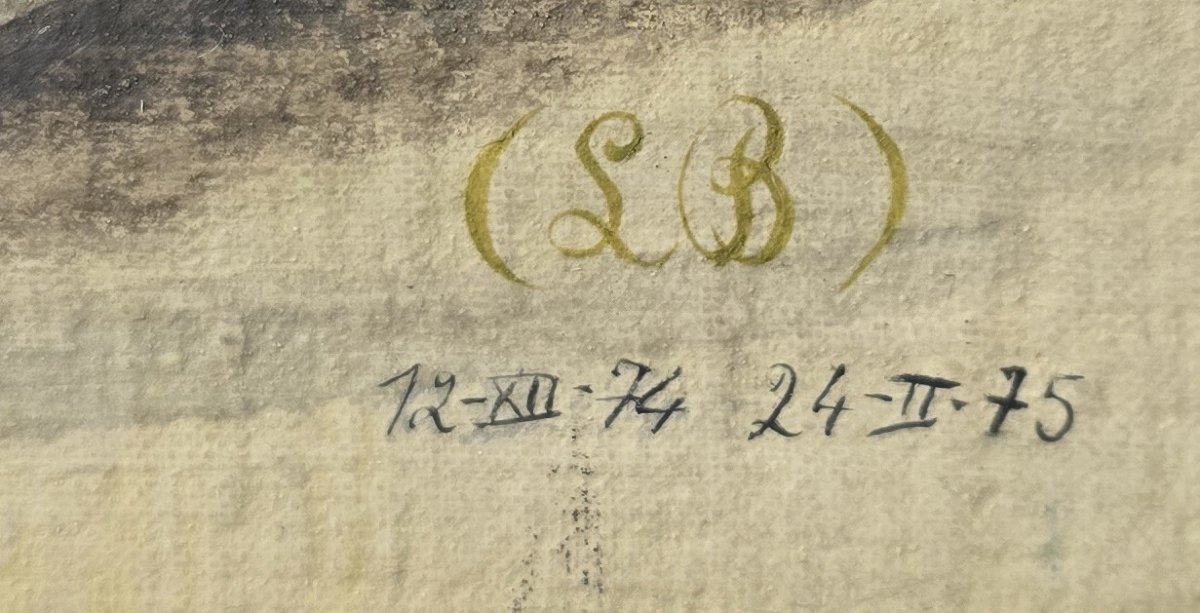 (LB)
12-XII-74 24-II-75